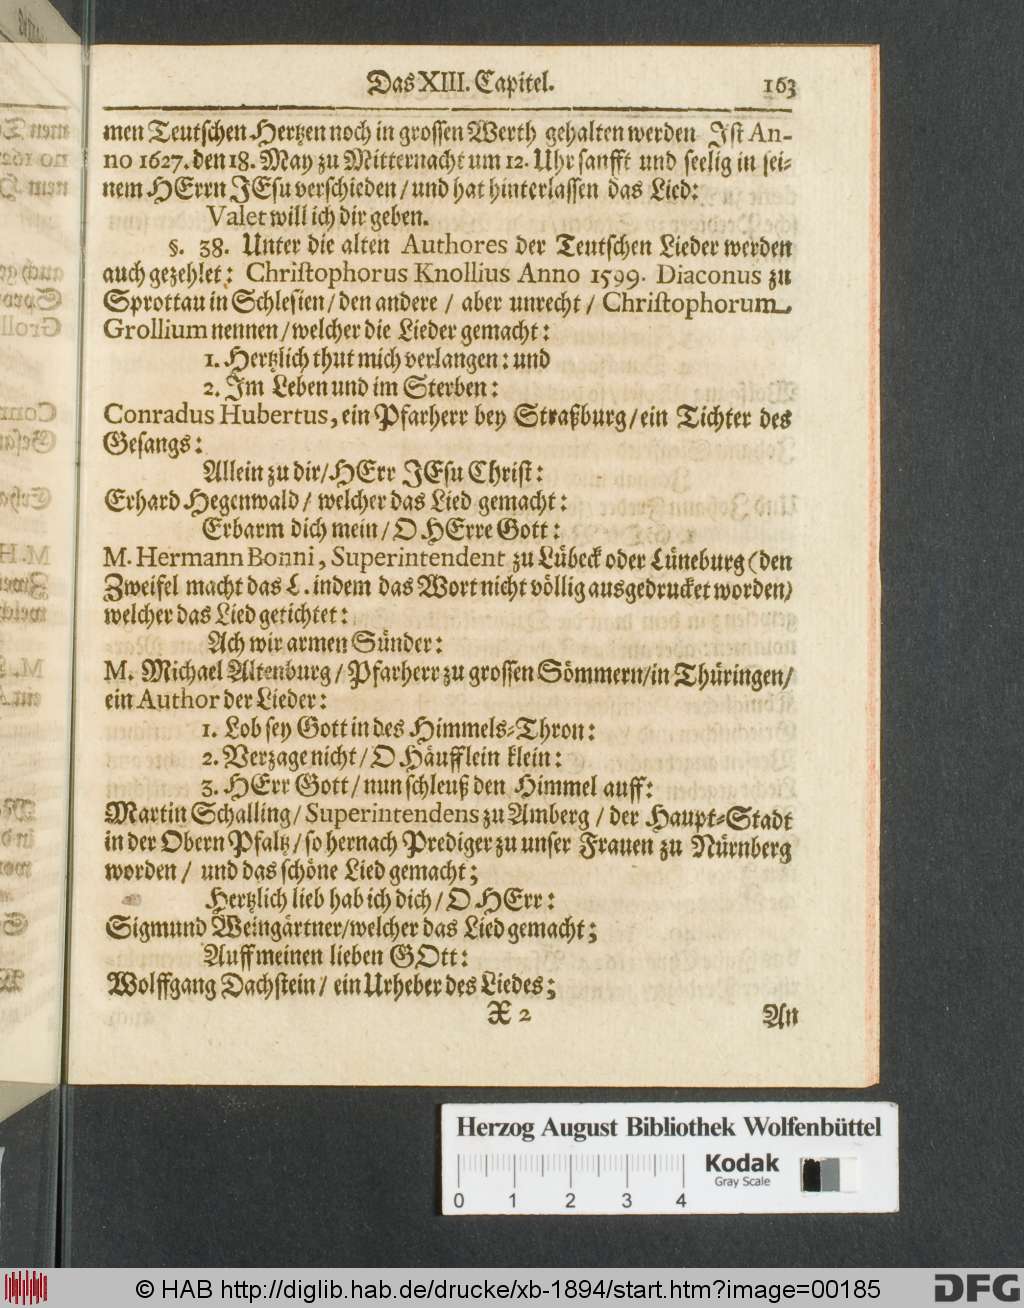 Das XIII. Capitel. 163
men Teutschen Hertzen noch in grossen Werth gehalten werden Ist An-
no 1627. den 18. May zu Mitternacht um 12. Uhr sanfft und seelig in sei-
nem HErrn JEsu verschieden / und hat hinterlassen das Lied:
Valet will ich dir geben.
§. 38. Unter die alten Authores der Teutschen Lieder werden
auch gezehlet: Christophorus Knollius Anno 1599. Diaconus zu
Sprottau in Schlesien / den andere / aber unrecht / Christophorum
Grollium nennen / welcher die Lieder gemacht:
1. Hertzlich thut mich verlangen: und
2. Im Leben und im Sterben:
Conradus Hubertus, ein Pfarherr bey Straßburg / ein Tichter des
Gesangs:
Allein zu dir / HErr JEsu Christ:
Erhard Hegenwald / welcher das Lied gemacht:
Erbarm dich mein / O HErre Gott:
M. Hermann Bonni, Superintendent zu Lübeck oder Lüneburg (den
Zweifel macht das L. indem das Wort nicht völlig ausgedrucket worden)
welcher das Lied getichtet:
Ach wir armen Sünder:
M. Michael Altenburg / Pfarherr zu grossen Sömmern / in Thüringen /
ein Author der Lieder:
1. Lob sey Gott in des Himmels-Thron:
2. Verzage nicht / O Häufflein klein:
3. HErr Gott / nun schleuß den Himmel auff:
Martin Schalling / Superintendens zu Amberg / der Haupt-Stadt
in der Obern Pfaltz / so hernach Prediger zu unser Frauen zu Nürnberg
worden / und das schöne Lied gemacht;
Hertzlich lieb hab ich dich / O HErr:
Sigmund Weingärtner / welcher das Lied gemacht;
Auff meinen lieben GOtt:
Wolffgang Dachstein / ein Urheber des Liedes;
X 2 An
Herzog August Bibliothek Wolfenbüttel
Kodak
Gray Scale
0 1 2 3 4
© HAB http://diglib.hab.de/drucke/xb-1894/start.htm?image=00185
DFG